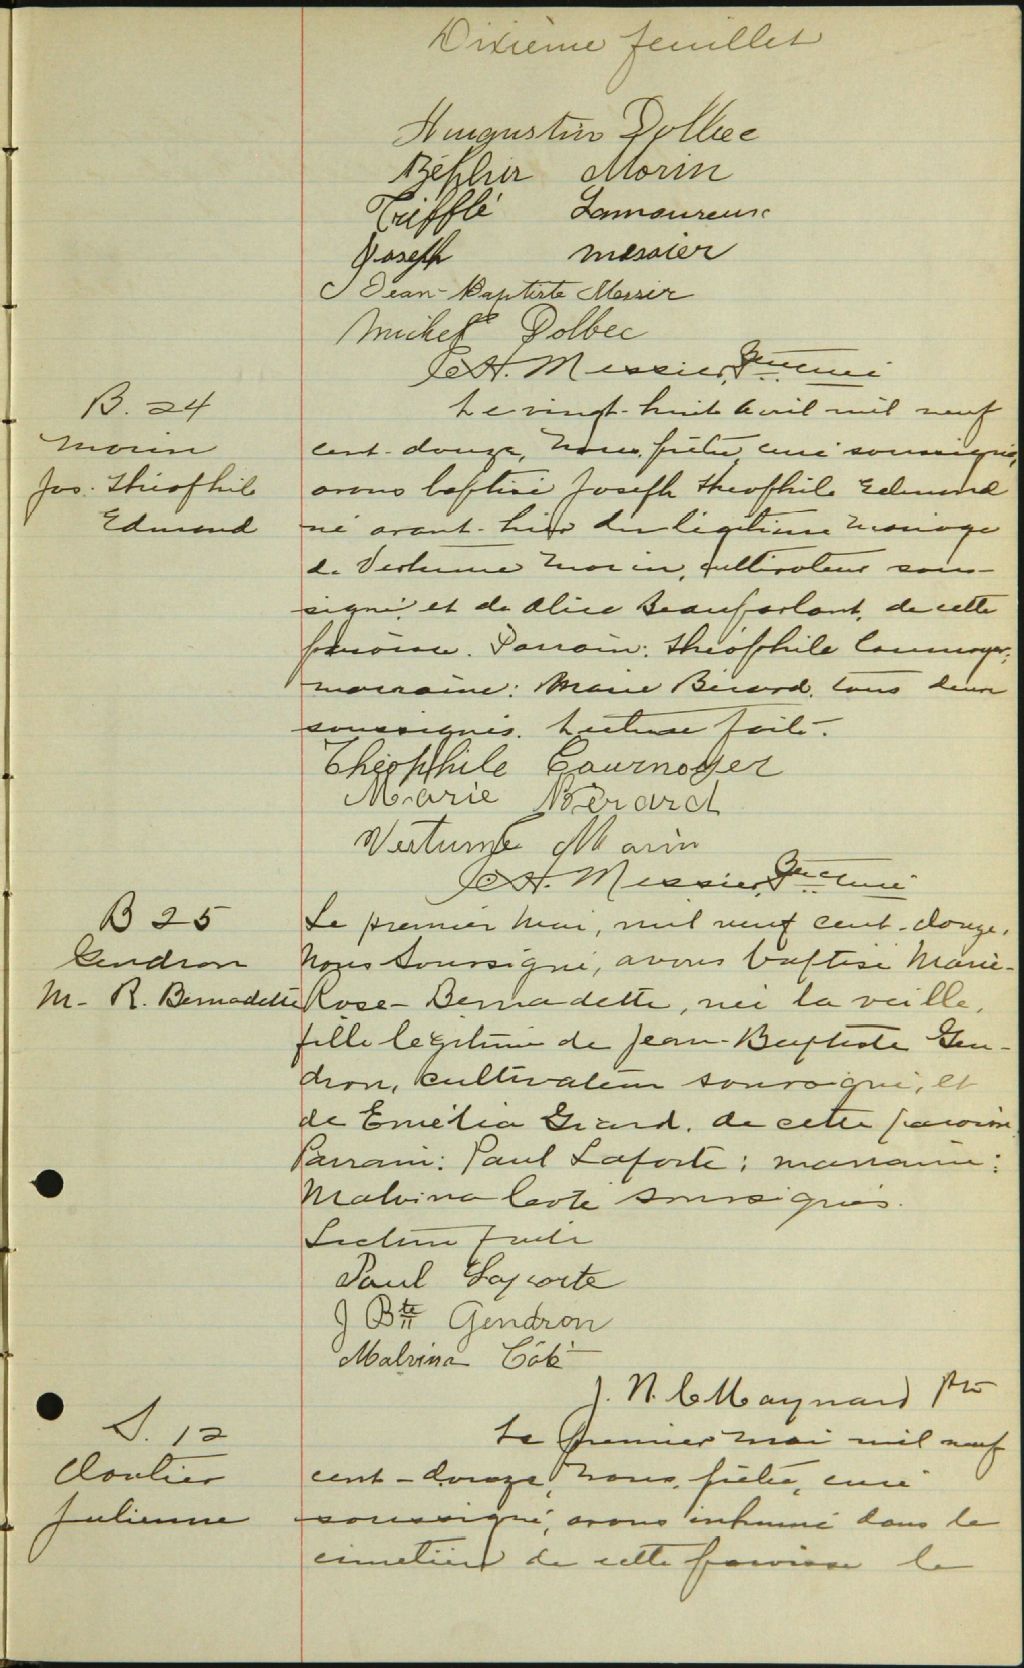 Dixième feuillet
Augustin Dolbec
Zéphir Morin
Trifflé Lamoureux
Joseph messier
Jean-Baptiste Messier
Michel Dolbec
A. Messier, Ptre curé
B. 24
Morin
Jos. Théophile
Edmond
Le vingt-huit avril mil neuf
cent-douze, Nous, prêtre, curé soussigné,
avons baptisé Joseph Théophile Edmond
né avant-hier du légitime mariage
de Vertume Morin, cultivateur sous-
signé, et de Alice Beauparlant, de cette
paroisse. Parrain: Théophile Cournoyer;
marraine: Marie Bérard, tous deux
soussignés. Lecture faite.
Théophile Cournoyer
Marie Bérard
Vertume Morin
A. Messier, Ptre curé
B 25
Gendron
M- R. Bernadette
Le premier Mai, mil neuf cent-douze,
Nous Soussigné, avons baptisé Marie-
Rose-Bernadette, née la veille,
fille légitime de Jean-Baptiste Gen-
dron, cultivateur soussigné, et
de Emélia Giard, de cette paroisse
Parrain: Paul Laporte; marraine:
Malvina Coté soussignés.
Lecture faite
Paul Laporte
J Bte Gendron
Malvina Côté
J. N. C Maynard ptre
S. 12
Cloutier
Julienne
Le premier mai mil neuf
cent-douze, Nous, prêtre, curé
soussigné, avons inhumé dans le
cimetière de cette paroisse le